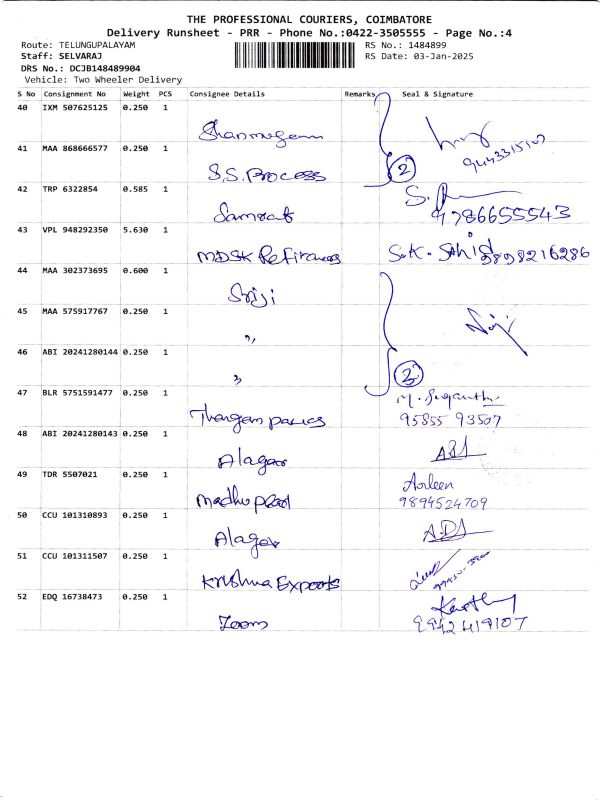 THE PROFESSIONAL COURIERS, COIMBATORE
Delivery Runsheet - PRR - Phone No.:0422-3505555 - Page No.:4
Route: TELUNGUPALAYAM RS No.: 1484899
Staff: SELVARAJ RS Date: 03-Jan-2025
DRS No.: DCJB148489904
Vehicle: Two Wheeler Delivery
S No Consignment No Weight PCS Consignee Details Remarks Seal & Signature
40 IXM 507625125 0.250 1
Shanmugam
41 MAA 868666577 0.250 1
S.S. Process 2
42 TRP 6322854 0.585 1 S.
Samrat 9786655543
43 VPL 948292350 5.630 1
MDSK
44 MAA 302373695 0.600 1
Sriji
45 MAA 575917767 0.250 1
"
46 ABI 20241280144 0.250 1
"
47 BLR 5751591477 0.250 1
Thangam 95855 93507
48 ABI 20241280143 0.250 1
Alagar
49 TDR 5507021 0.250 1
Madhu 9894524709
50 CCU 101310893 0.250 1
Alagar
51 CCU 101311507 0.250 1
Krishna Exports
52 EDQ 16738473 0.250 1
Zoom 9942419107